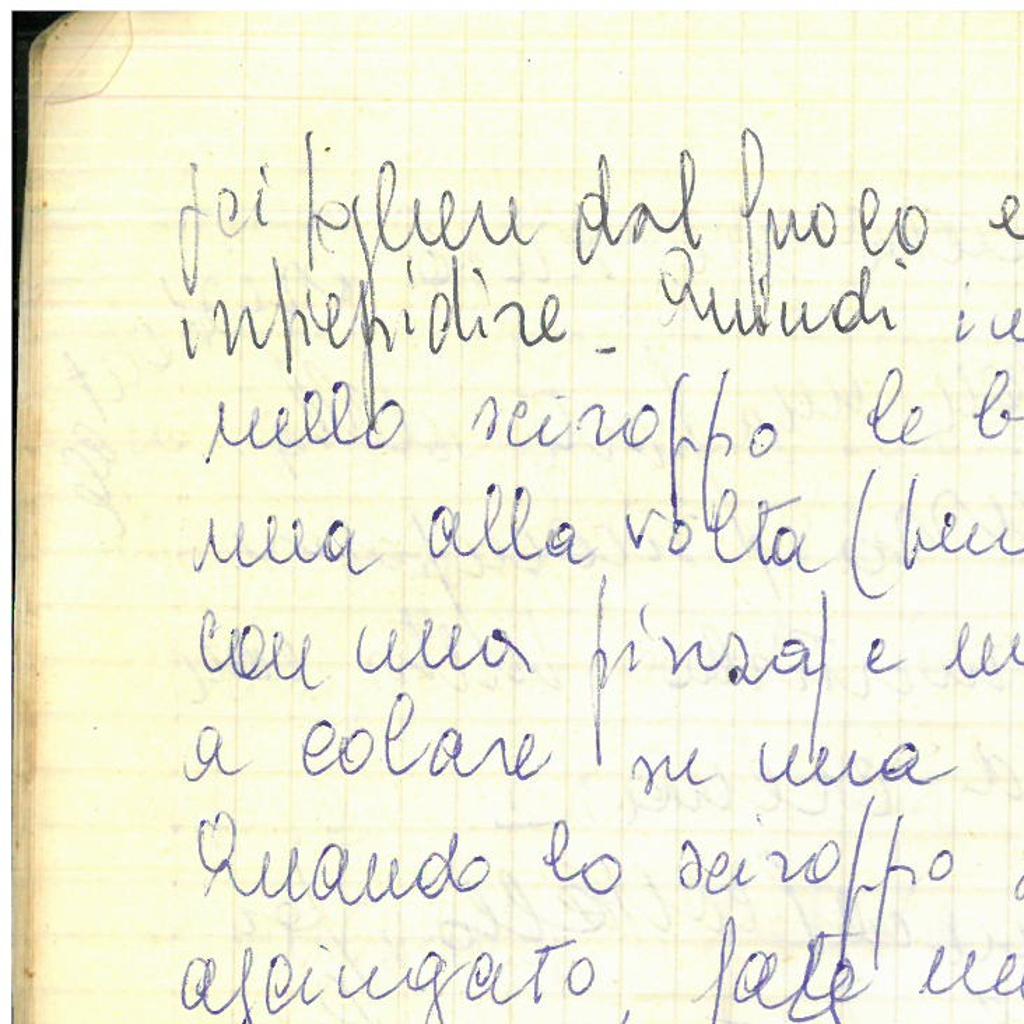 poi togliere dal fuoco e
intiepidire. Quindi
nello sciroppo le
una alla volta (
con una pinza) e
a colare su una
Quando lo sciroppo
asciugato, fate